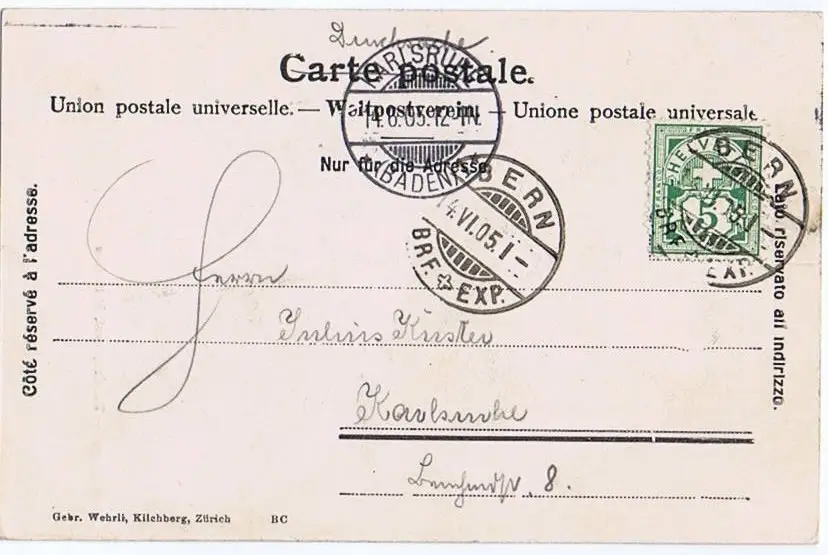 Drucksache
Carte postale.
Union postale universelle. — Weltpostverein. — Unione postale universale
Nur für die Adresse.
KARLSRUHE
14.6.05.12-1N.
(BADEN)
BERN
14.VI.05.1-
BRF. EXP.
HELVETIA
5
BERN
VI.05.1-
BRF. EXP.
Côté réservé à l'adresse.
Lato riservato all indirizzo.
Herrn
Julius Küster
Karlsruhe
8.
Gebr. Wehrli, Kilchberg, Zürich BC